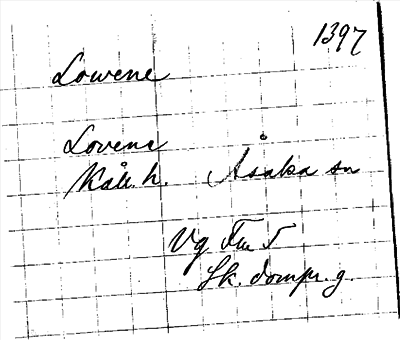 1397
Lowene
Lovene
Kåll. h. Åsaka sn
Vg Fm 5
Sk. dompr. g.